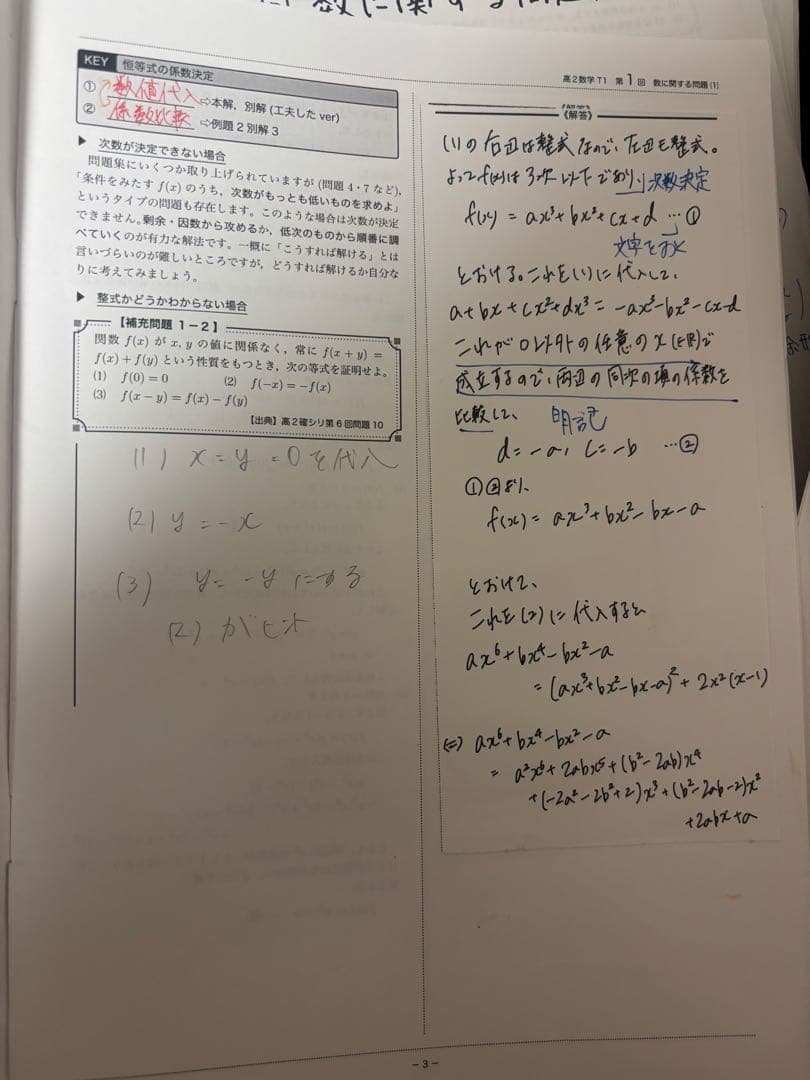 数に関する問
KEY 恒等式の係数決定
① 数値代入 ⇨本解, 別解 (工夫した ver)
② 係数比較 ⇨例題 2 別解 3
▶ 次数が決定できない場合
問題集にいくつか取り上げられていますが (問題 4・7 など),
「条件をみたす f(x) のうち, 次数がもっとも低いものを求めよ」
というタイプの問題も存在します。このような場合は次数が決定
できません。剰余・因数から攻めるか, 低次のものから順番に調
べていくのが有力な解法です。一概に「こうすれば解ける」とは
言いづらいのが難しいところですが, どうすれば解けるか自分な
りに考えてみましょう。
▶ 整式かどうかわからない場合
【補充問題 1－2】
関数 f(x) が x, y の値に関係なく, 常に f(x + y) =
f(x) + f(y) という性質をもつとき, 次の等式を証明せよ。
(1) f(0) = 0 (2) f(−x) = −f(x)
(3) f(x − y) = f(x) − f(y)
【出典】高2確シリ第6回問題 10
(1) x = y = 0 を代入
(2) y = −x
(3) y = −y にする
(2) がヒント
高2数学T1 第1回 数に関する問題 (1)
《解答》
(1)の右辺は整式なので、左辺も整式。
よってf(x)は3次以下であり、次数決定
f(x) = ax³+bx²+cx+d … ①
文字をおく
とおける。これを(1)に代入して、
a+bx+cx²+dx³ = −ax³−bx²−cx−d
これが0以外の任意のxで
成立するので、両辺の同次の項の係数を
比較して、 明記
d = −a, c = −b … ②
①②より、
f(x) = ax³+bx²−bx−a
とおけて、
これを(2)に代入すると
ax⁶+bx⁴−bx²−a
= (ax³+bx²−bx−a)²+2x²(x−1)
(⇔) ax⁶+bx⁴−bx²−a
= a²x⁶+2abx⁵+(b²−2ab)x⁴
+(−2a²−2b²+2)x³+(b²−2ab−2)x²
+2abx+a
－3－